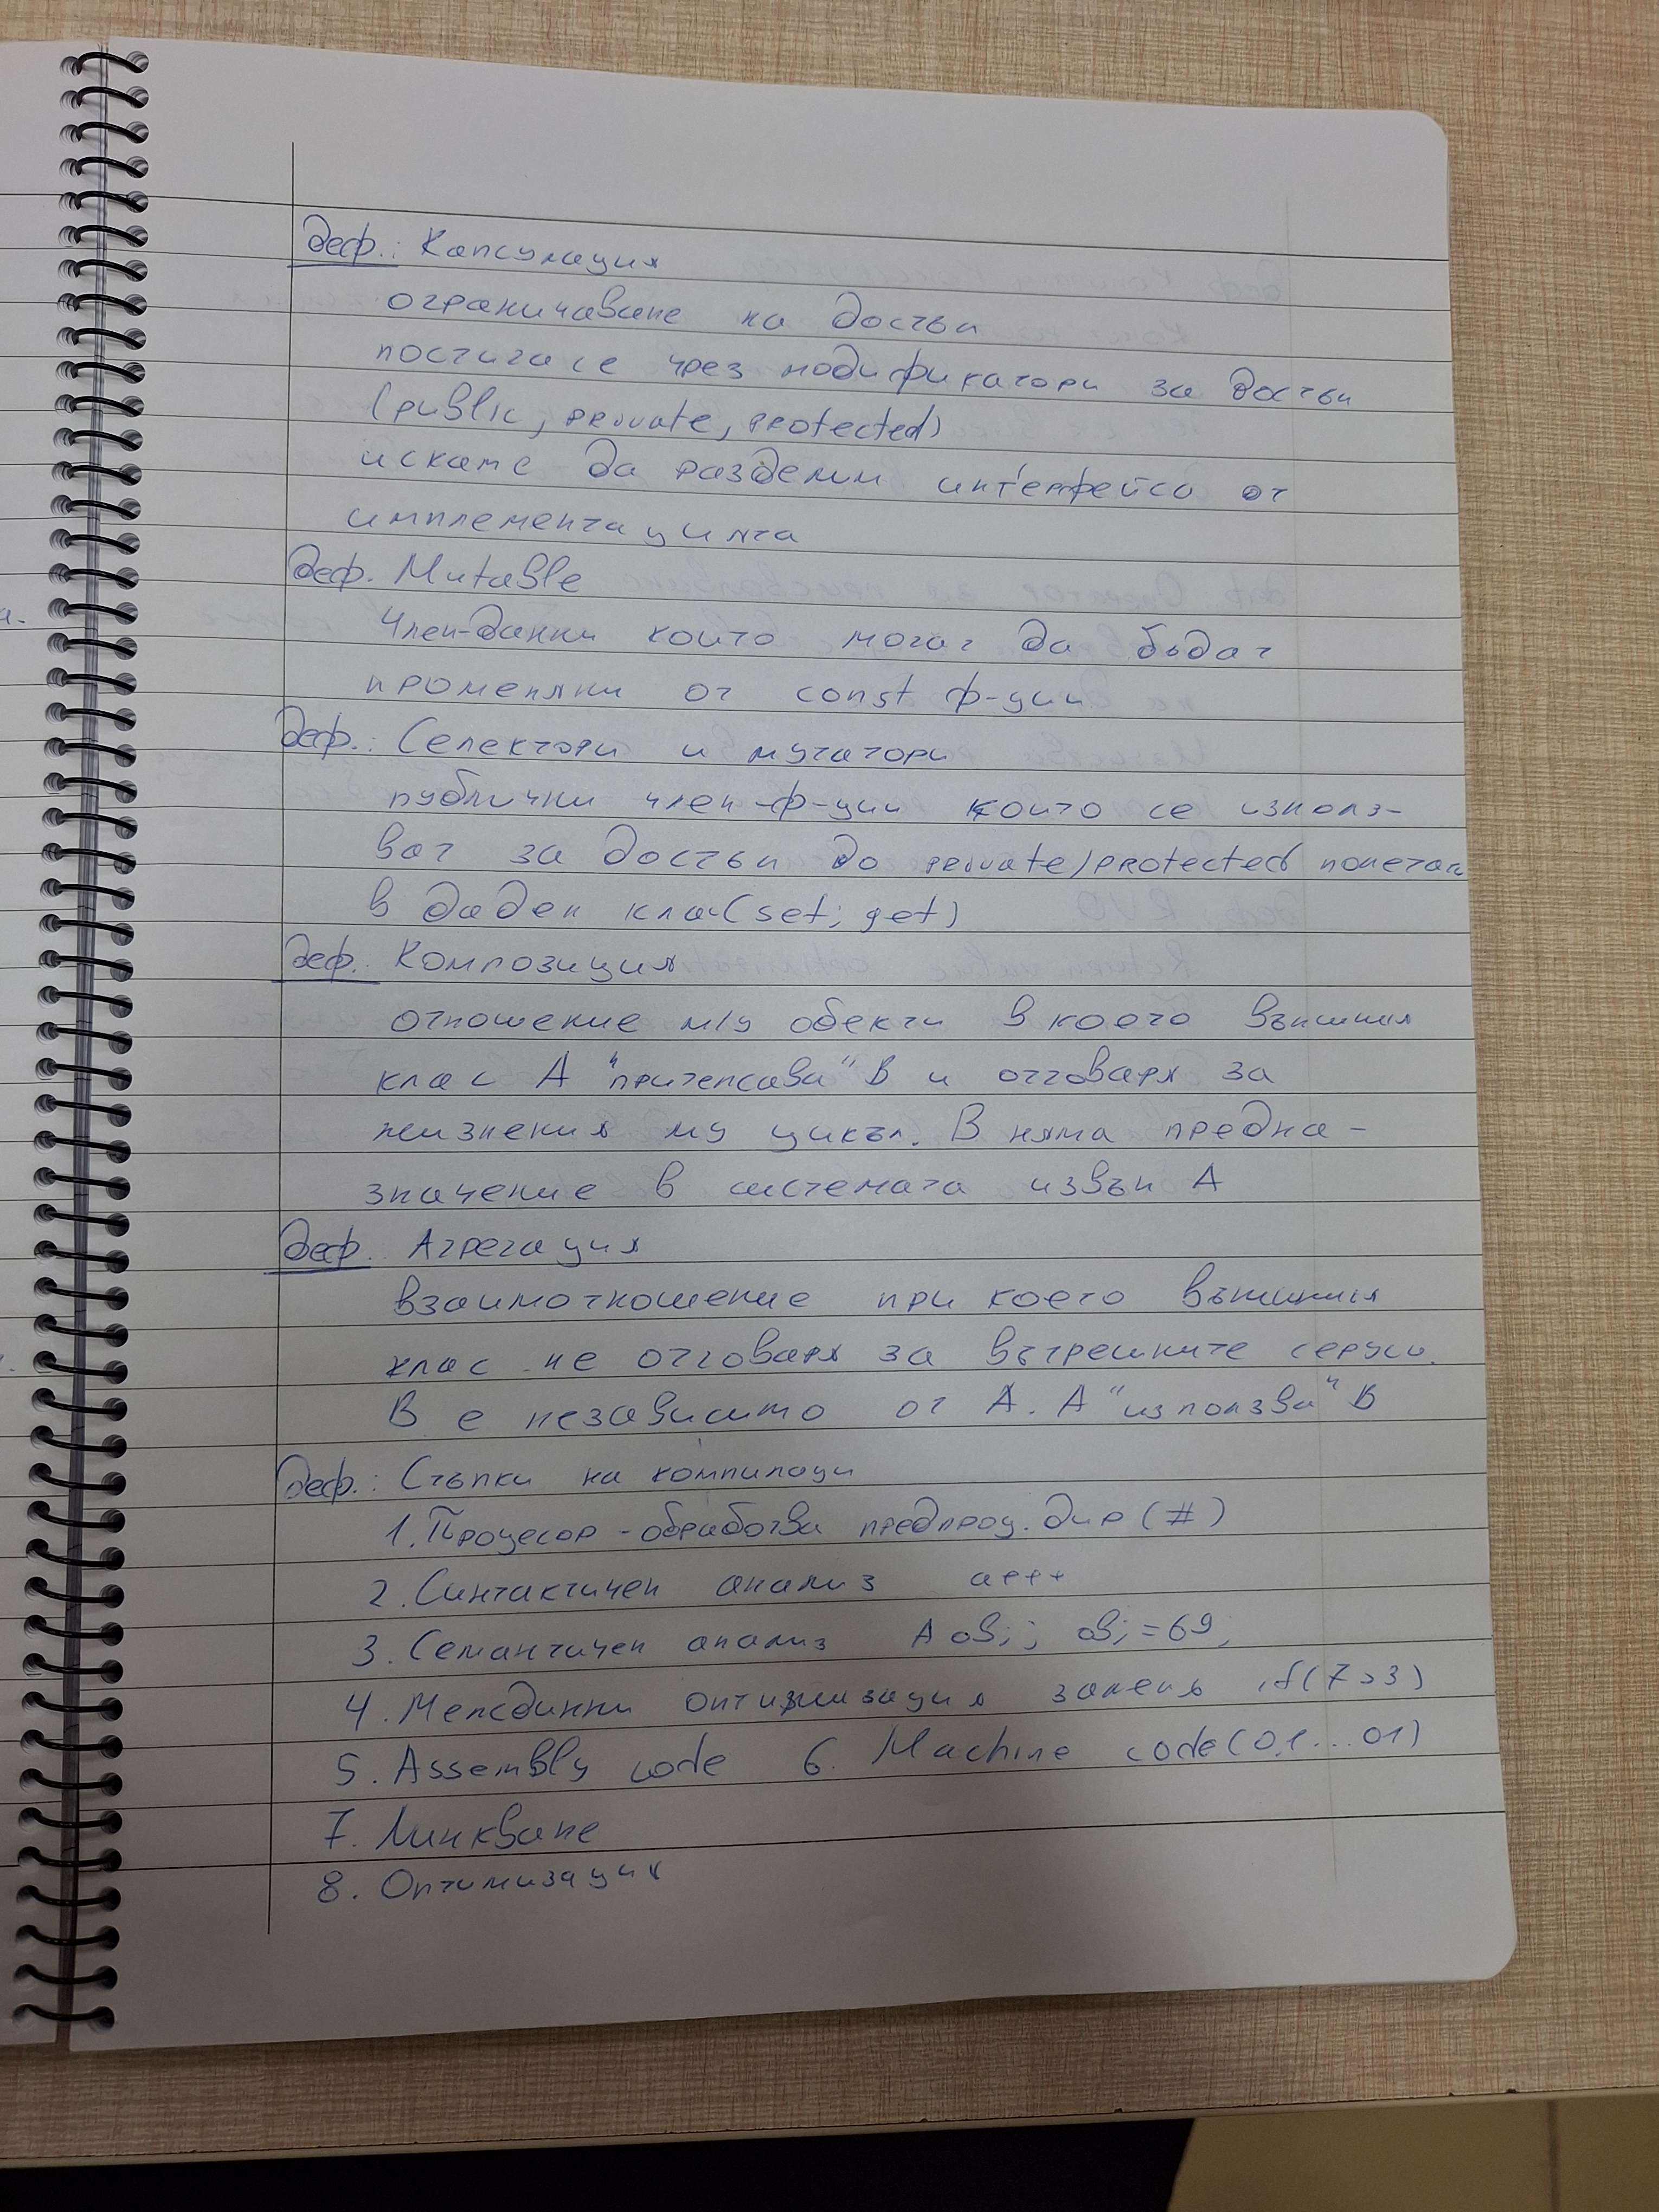 деф.: Капсулация
ограничаване на достъп
постига се чрез модификатори за достъп
(public, private, protected)
искаме да разделим интерфейса от
имплементацията
деф. Mutable
Член-данни които могат да бъдат
променяни от const ф-ции
деф.: Селектори и мутатори
публични член-ф-ции които се използ-
ват за достъп до private/protected полета
в даден клас (set; get)
деф. Композиция
отношение м/у обекти в което външния
клас А "притежава" В и отговаря за
жизнения му цикъл. В няма предна-
значение в системата извън А
деф. Агрегация
взаимоотношение при което външния
клас не отговаря за вътрешните
В е независимо от А. А "използва" В
деф.: Стъпки на компилаци
1. Процесор - обработва предпроц. дир (#)
2. Синтактичен анализ a+++
3. Семантичен анализ A obj; obj=69;
4. Междинни оптимизация заменя if(7>3)
5. Assembly code 6. Machine code (0,1...01)
7. Линкване
8. Оптимизация